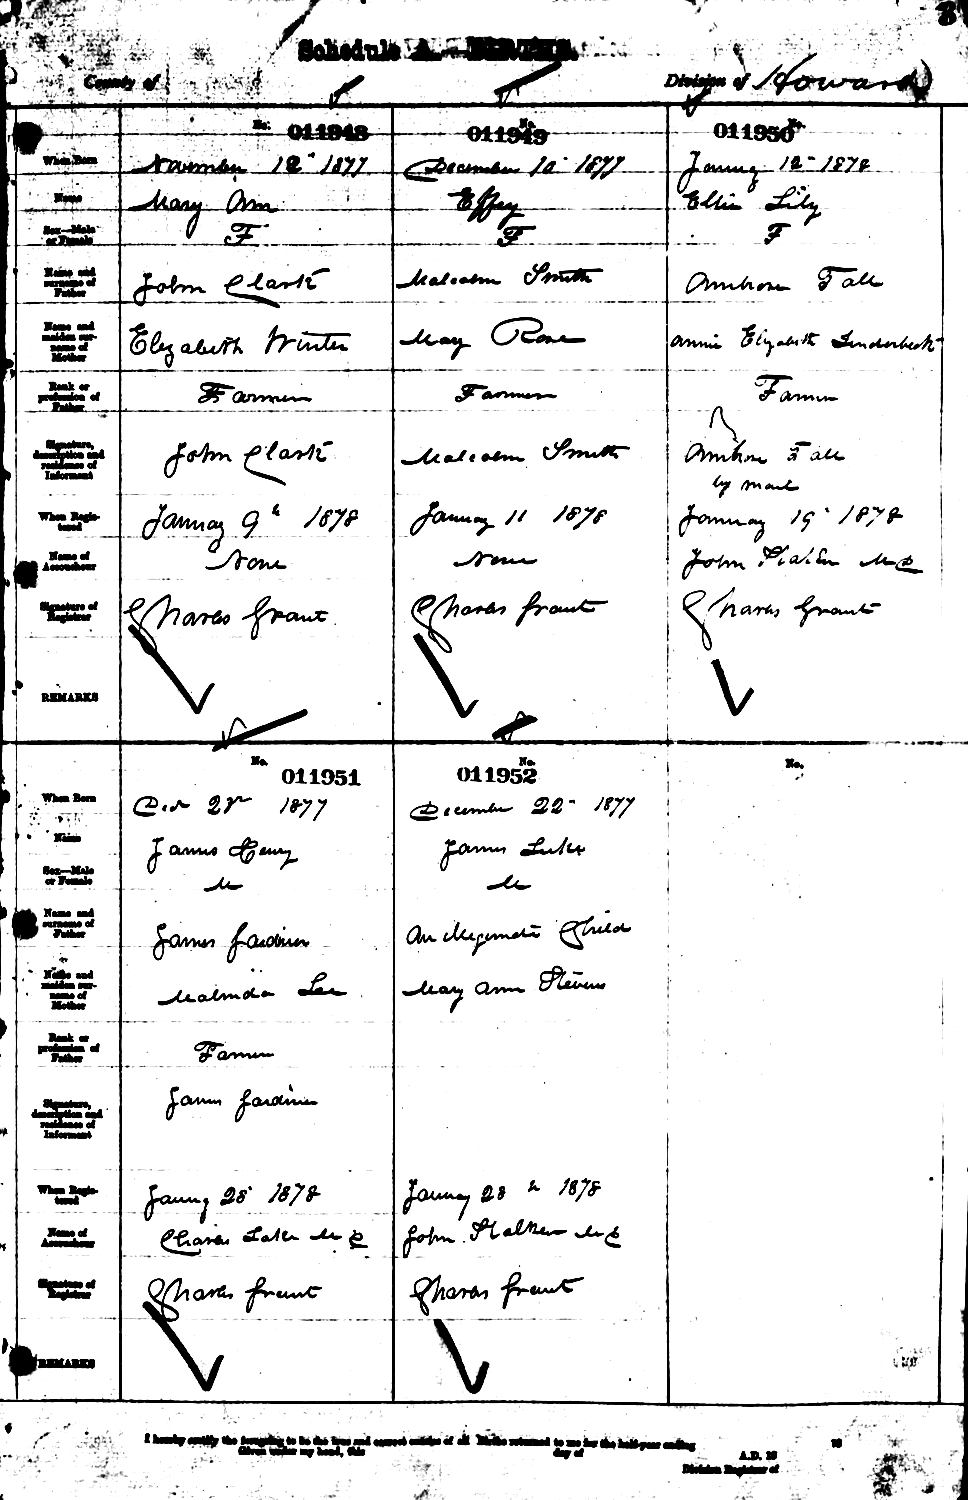 8
Schedule A.—BIRTHS.
County of
Division of Howard
No. 011948 No. 011949 No. 011950
When Born November 12 1877 December 10 1877 January 12 1878
Name Mary Ann Effey Elsie Lily
Sex—Male or Female F F F
Name and surname of Father John Clark Malcolm Smith Ambrose Fall
Name and maiden surname of Mother Elizabeth Winter Mary Rose Annie Elizabeth Linderbeck
Rank or profession of Father Farmer Farmer Farmer
Signature, description and residence of Informant John Clark Malcolm Smith Ambrose Fall
by mail
When Registered January 9th 1878 January 11 1878 January 19 1878
Name of Accoucheur None None John MD
Signature of Registrar Charles Grant Charles Grant Charles Grant
REMARKS
No. 011951 No. 011952 No.
When Born 1877 December 22 1877
Name James Henry James Luke
Sex—Male or Female M M
Name and surname of Father James Gardiner An illegimate Child
Name and maiden surname of Mother Malinda Lee Mary Ann Stevens
Rank or profession of Father Farmer
Signature, description and residence of Informant James Gardiner
When Registered January 28 1878 January 28th 1878
Name of Accoucheur Charles Lake MD John Stalker MD
Signature of Registrar Charles Grant Charles Grant
REMARKS
I hereby certify the foregoing to be the true and correct entries of all Births returned to me for the half-year ending 18
Given under my hand, this day of A.D. 18
Division Registrar of